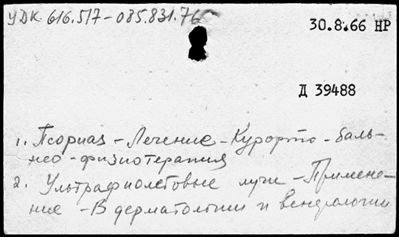 УДК 616.517-085.831.76
30.8.66 НР
Д 39488
1. Псориаз - Лечение - Курорто-баль-
нео-физиотерапия
2. Ультрафиолетовые лучи - Примене-
ние - В дерматологии и венерологии